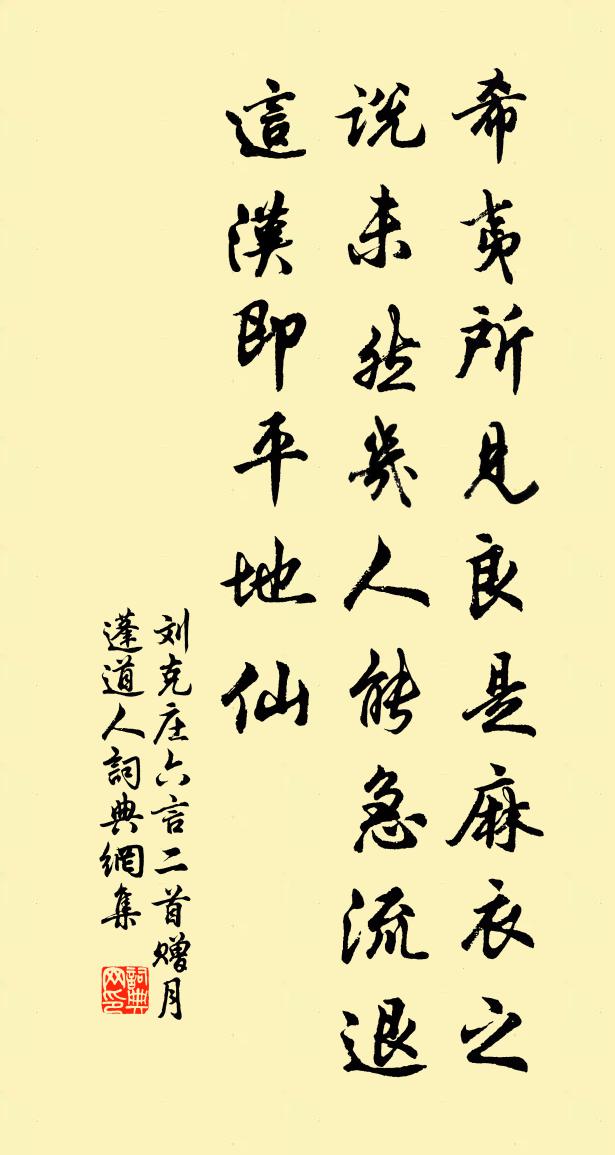 希夷所見良是麻衣之
説未然幾人能急流退
這漢即平地仙
刘克庄六言二首赠月
蓬道人詞典網集
詞典网印